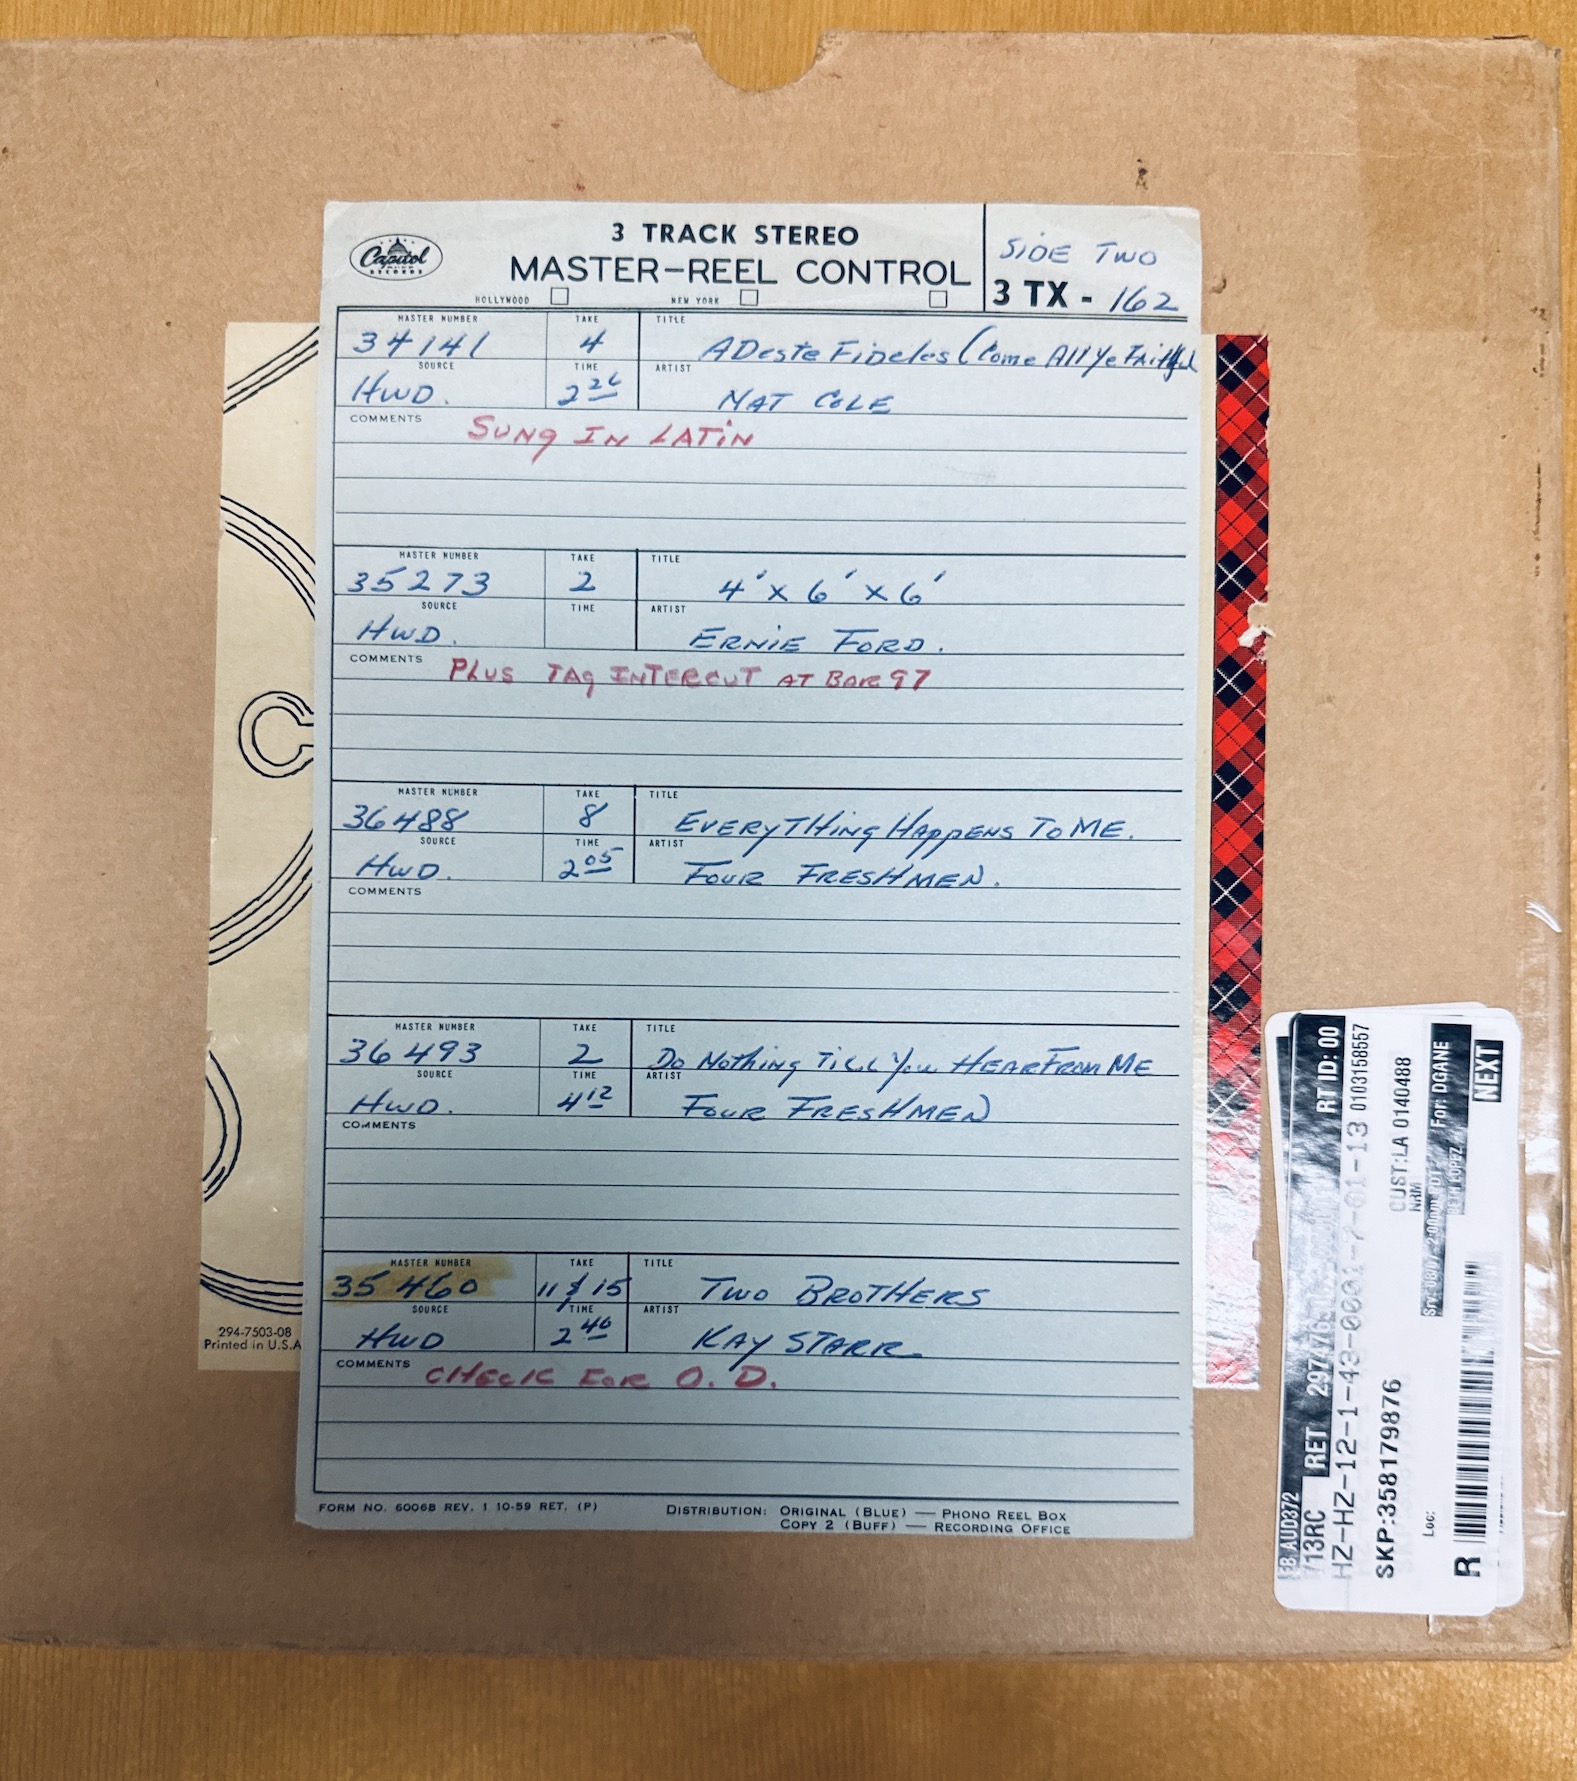 Capitol
RECORDS
3 TRACK STEREO
MASTER-REEL CONTROL
HOLLYWOOD NEW YORK
SIDE TWO
3 TX - 162
MASTER NUMBER TAKE TITLE
34141 4 ADeste Fideles (Come All Ye Faithful
SOURCE TIME ARTIST
HWD. 2 26 NAT COLE
COMMENTS SUNg IN LATiN
MASTER NUMBER TAKE TITLE
35273 2 4' x 6' x 6'
SOURCE TIME ARTIST
HWD. ERNiE FORD.
COMMENTS PLUS TAg INTERCUT AT BAR 97
MASTER NUMBER TAKE TITLE
36488 8 EVERyTHing HAppENS To ME.
SOURCE TIME ARTIST
HWD. 2 05 FOUR FRESHMEN.
COMMENTS
MASTER NUMBER TAKE TITLE
36493 2 Do NoTHing TiLL You HEAR FROM ME
SOURCE TIME ARTIST
HWD. 4 12 FOUR FRESHMEN
COMMENTS
MASTER NUMBER TAKE TITLE
35460 11 & 15 Two BROTHERS
SOURCE TIME ARTIST
HWD 2 40 KAY STARR
COMMENTS CHECK FOR O. D.
FORM NO. 6006B REV. 1 10-59 RET. (P)
DISTRIBUTION: ORIGINAL (BLUE) — PHONO REEL BOX
COPY 2 (BUFF) — RECORDING OFFICE
294-7503-08
Printed in U.S.A
AUD372
/13RC RET RT ID: 00
HZ-HZ-12-1-43-0001-7-01-13 0103158557
SKP:358179876
CUST:LA 0140488
NRM
Loc:
For: DGANE
R NEXT